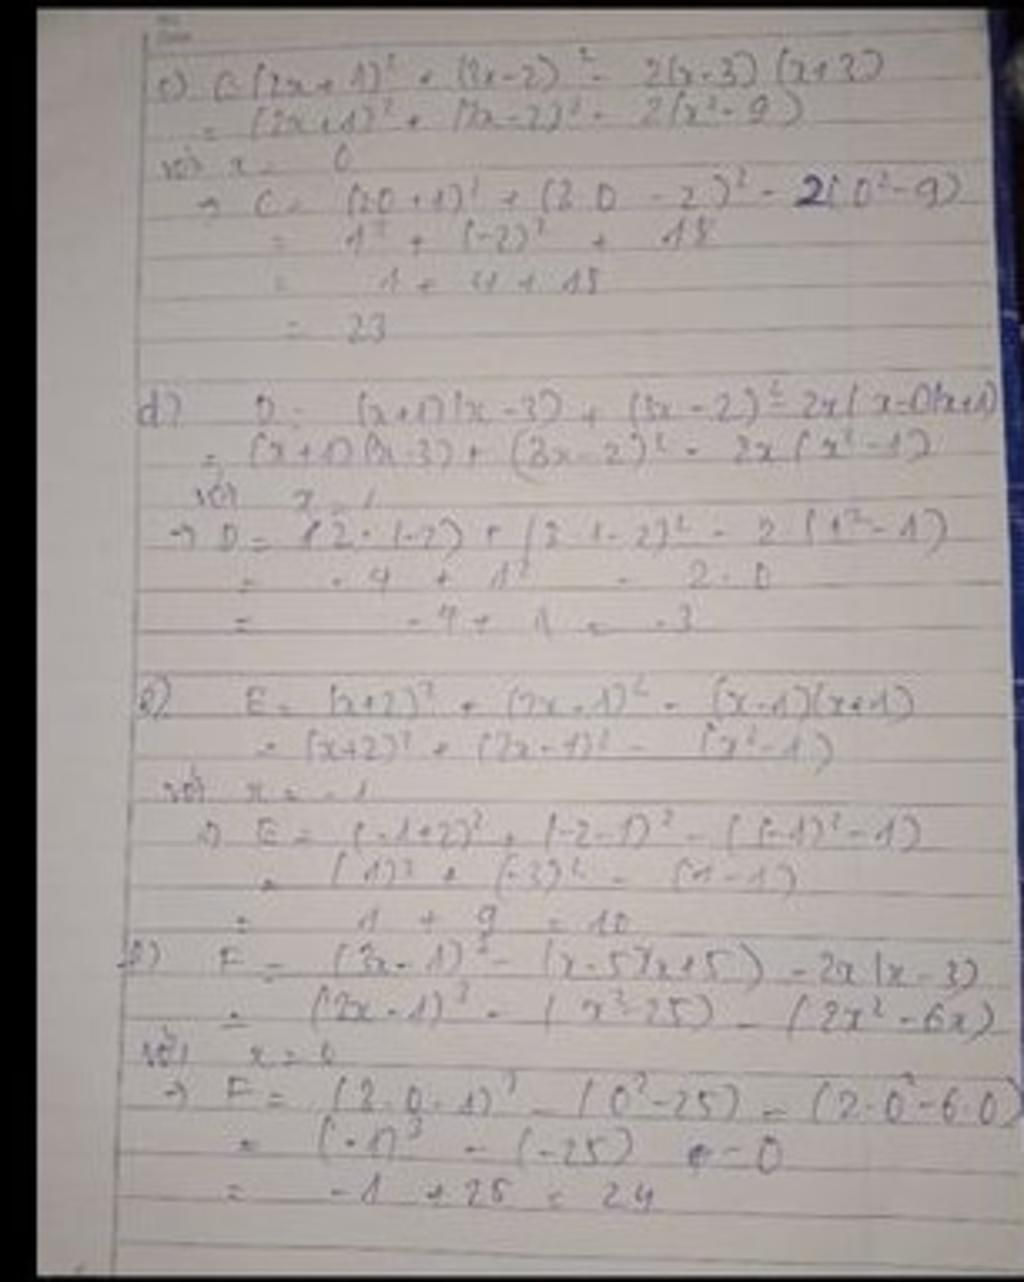 c) C = (2x+1)² + (3x-2)² - 2(x-3)(x+3)
= (2x+1)² + (3x-2)² - 2(x²-9)
với x = 0
→ C = (2.0+1)² + (3.0 - 2)² - 2(0²-9)
= 1² + (-2)² + 18
= 1 + 4 + 18
= 23
d) D = (x+1)(x-3) + (3x-2)² - 2x(x-1)(x+1)
= (x+1)(x-3) + (3x-2)² - 2x(x²-1)
với x = 1
→ D = (2.(-2)) + (3.1-2)² - 2.(1²-1)
= -4 + 1² - 2.0
= -4 + 1 = -3
e) E = (x+2)² + (2x-1)² - (x-1)(x+1)
= (x+2)² + (2x-1)² - (x²-1)
với x = -1
→ E = (-1+2)² + (-2-1)² - ((-1)²-1)
= (1)² + (-3)² - (1-1)
= 1 + 9 = 10
F = (3x-1) - (x-5)(x+5) - 2x(x-3)
= (x²-25) - (2x²-6x)
với x = 0
→ F = - (0²-25) - (2.0²-6.0)
= (-1)³ - (-25) - 0
= -1 + 25 = 24